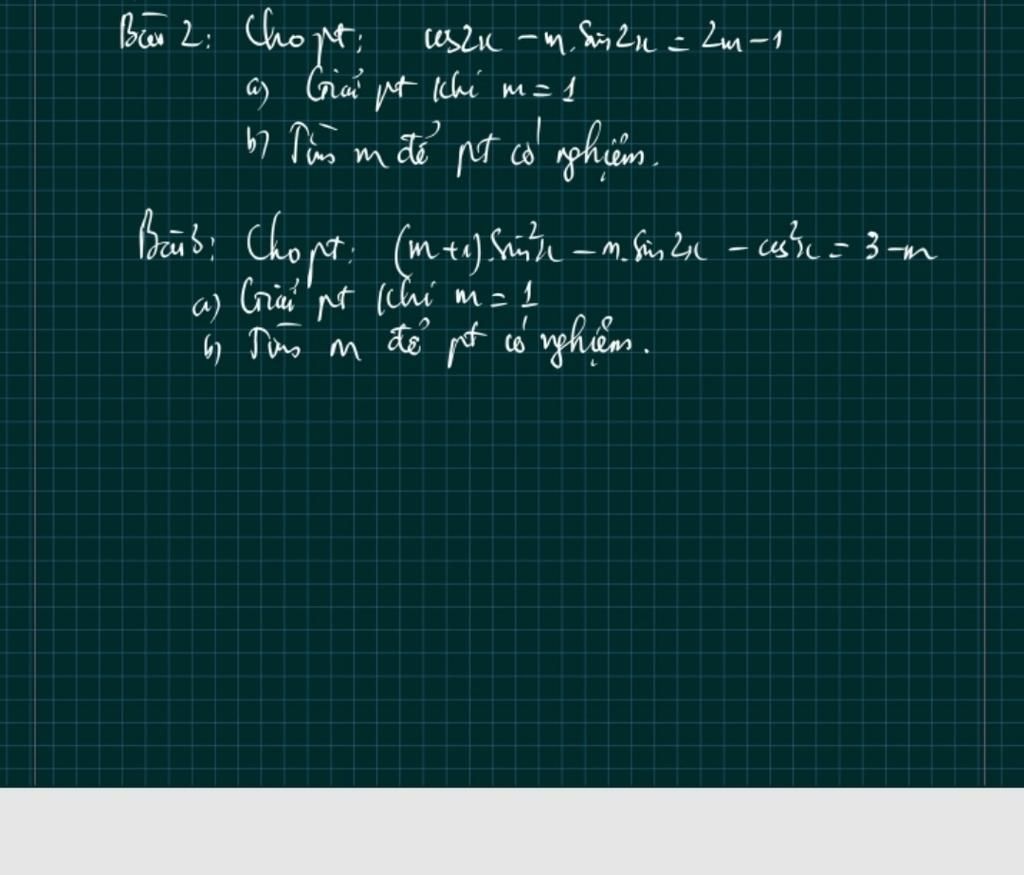 Bài 2: Cho pt: cos2x - m.Sin2x = 2m-1
a) Giải pt khi m = 1
b) Tìm m để pt có nghiệm.
Bài 3: Cho pt: (m+1).Sin²x - m.Sin2x - cos²x = 3-m
a) Giải pt khi m = 1
b) Tìm m để pt có nghiệm.